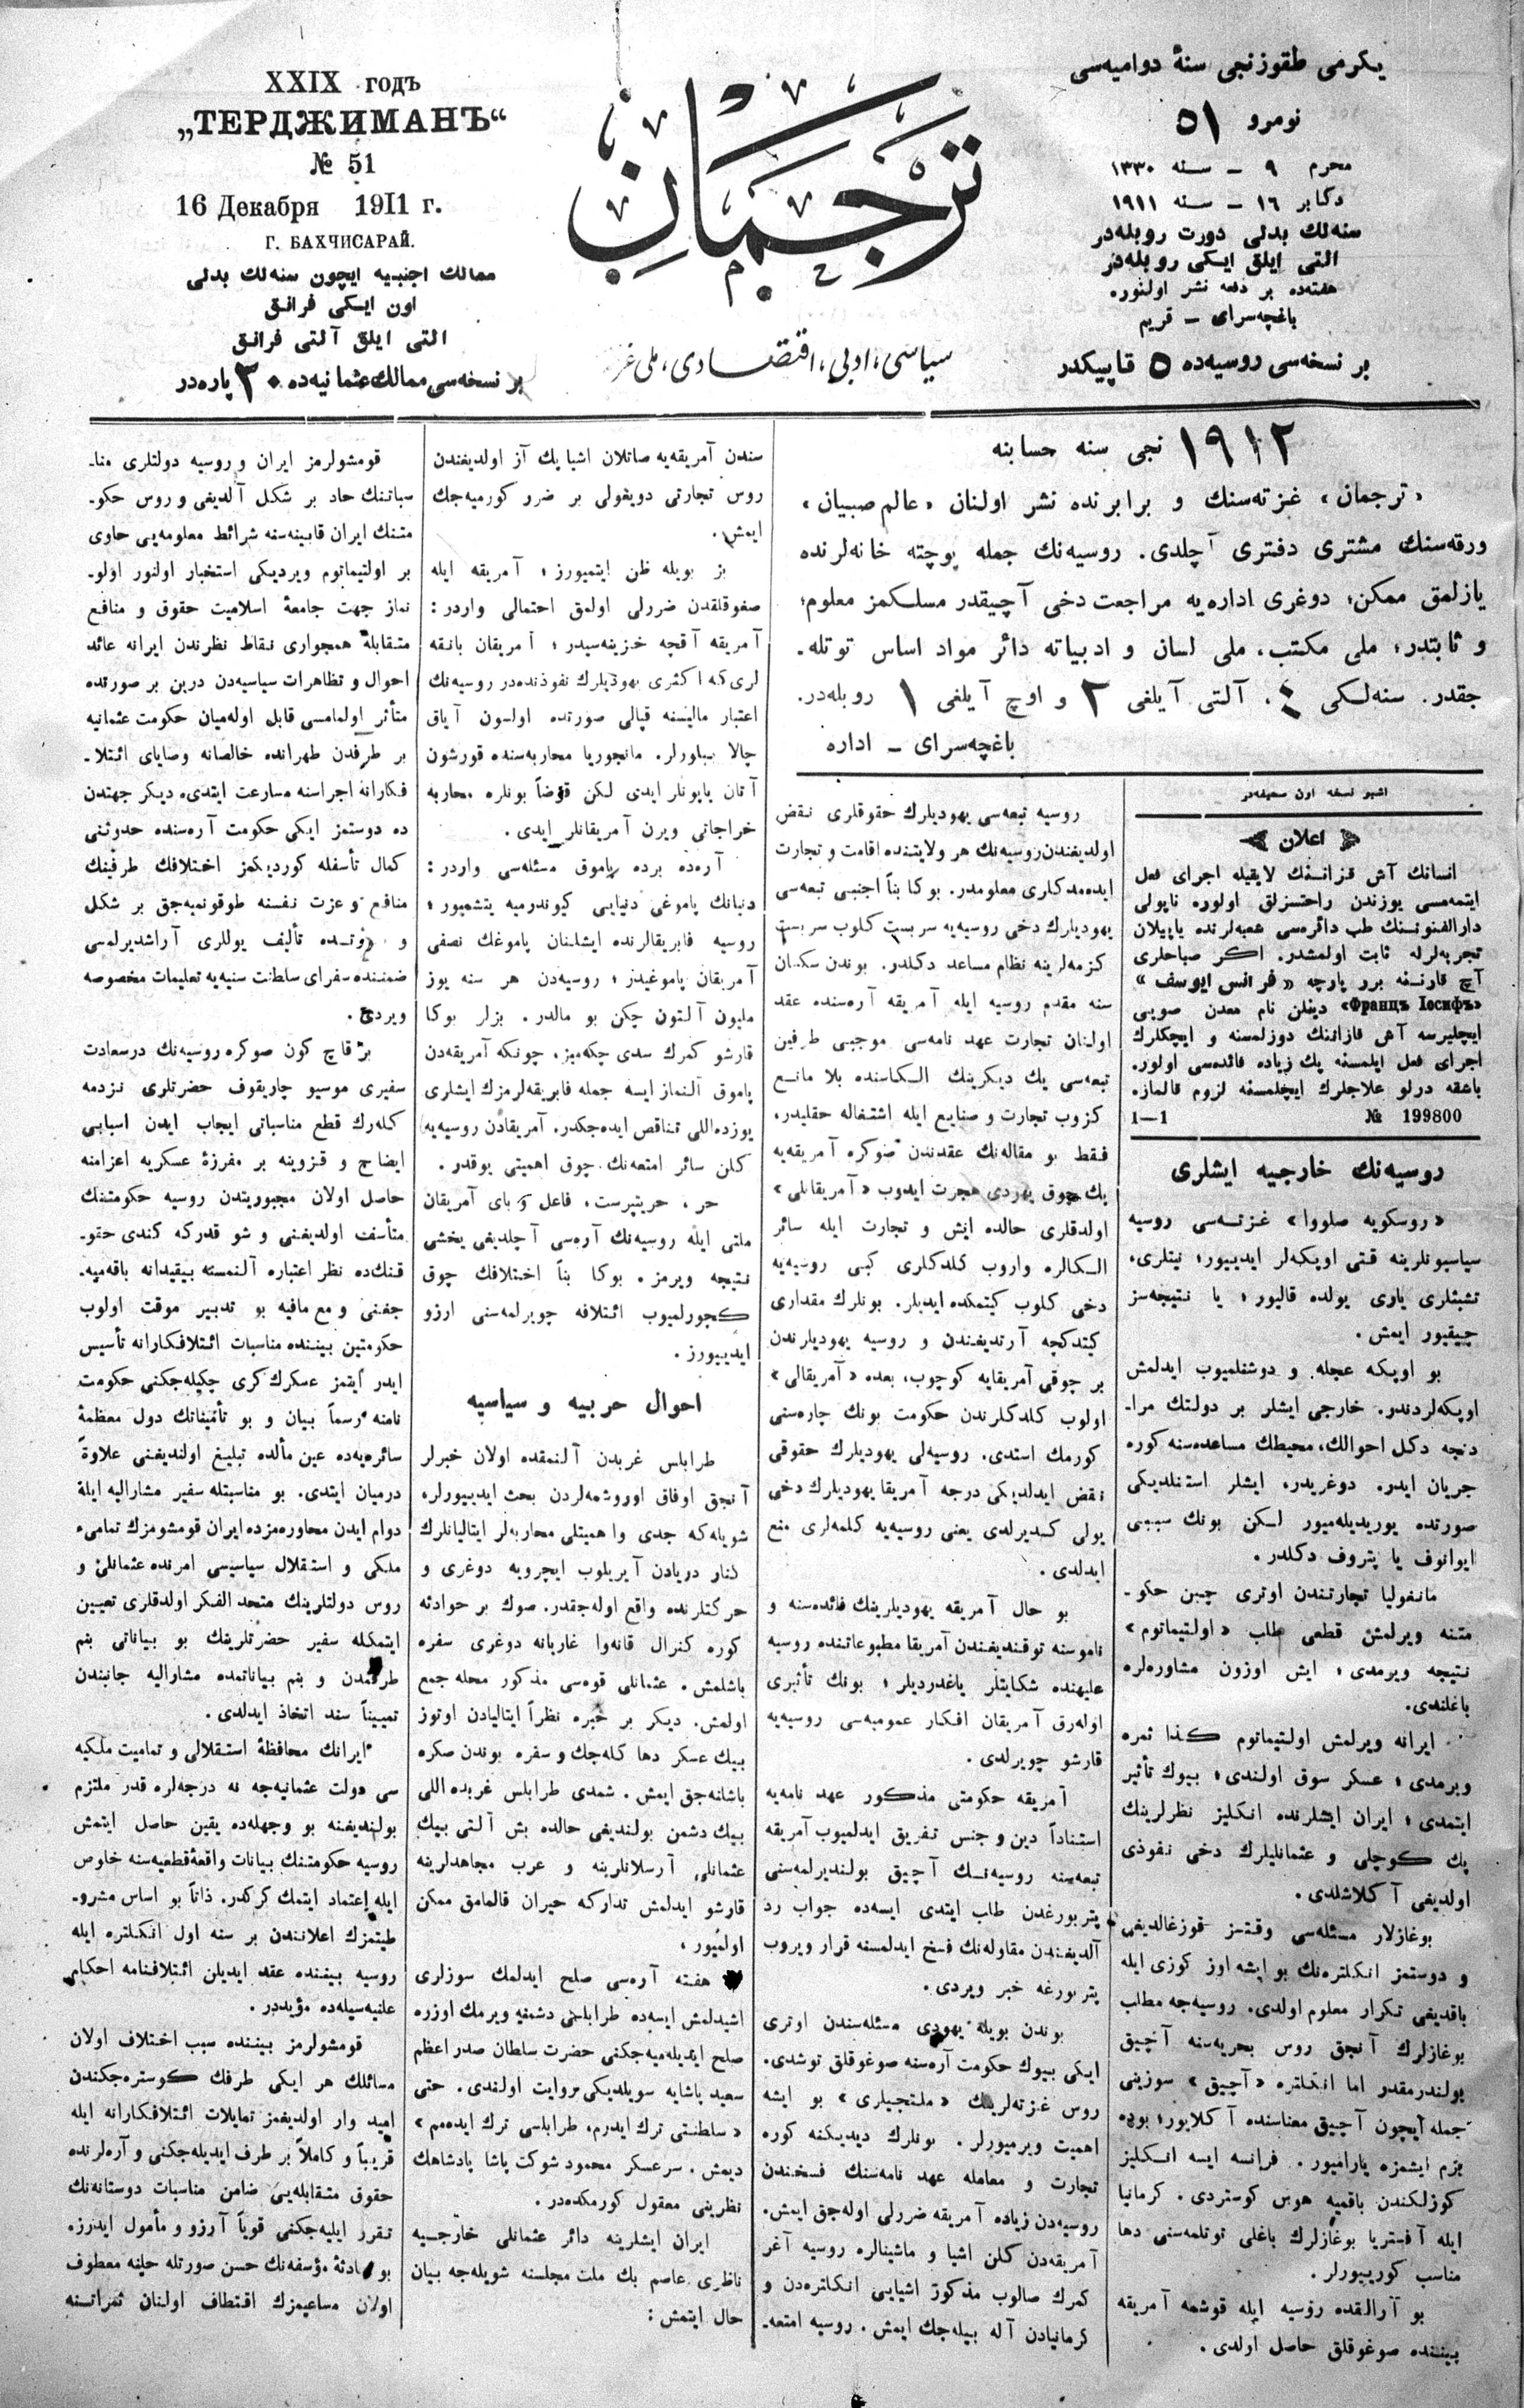 XXIX годъ
„ТЕРДЖИМАНЪ“
№ 51
16 Декабря 1911 г.
Г. БАХЧИСАРАЙ.
ممالك اجنبیه ایچون سنه‌لك بدلی
اون ایکی فرانق
التی ایلق آلتی فرانق
بر نسخه‌سی ممالك عثمانیه‌ده ۳۰ پاره‌در
ترجمان
سیاسی، ادبی، اقتصادی، ملی غز
یکرمی طقوزنجی سنهٔ دوامیه‌سی
نومرو ۵۱
محرم ۹ – سنه ۱۳۳۰
دکابر ۱۶ – سنه ۱۹۱۱
سنه‌لك بدلی دورت روبله‌در
التی ایلق ایکی روبله‌در
هفته‌ده بر دفعه نشر اولنور.
باغچه‌سرای – قریم
بر نسخه‌سی روسیه‌ده ۵ قاپیکدر
۱۹۱۲ نجی سنه حسابنه
«ترجمان» غزته‌سنك و برابرنده نشر اولنان «عالم صبیان»
ورقه‌سنك مشتری دفتری آچلدی. روسیه‌نك جمله پوچته خانه‌لرنده
یازلمق ممکن؛ دوغری اداره‌یه مراجعت دخی آچیقدر مسلکمز معلوم؛
و ثابتدر؛ ملی مکتب، ملی لسان و ادبیاته دائر مواد اساس توتله‌ـ
جقدر. سنه‌لکی ٤، آلتی آیلغی ۲ و اوچ آیلغی ۱ روبله‌در.
باغچه‌سرای – اداره
اشبو نسخه اون صحیفه‌در
اعلان
انسانك آش قزانسنك لایقیله اجرای فعل
ایتمه‌مسی یوزندن راحتسزلق اولور. ناپولی
دارالفنوننك طب دائره‌سی شعبه‌لرنده یاپیلان
تجربه‌لرله ثابت اولمشدر. اکر صباحلری
آچ قارنسنه برر پارچه «فرانس ایوسف»
«Францъ Іосифъ» دینلن نام معدن صویی
ایچلیرسه آش قازاننك دوزلمسنه و ایچکلرك
اجرای فعل ایلمسنه پك زیاده فائده‌سی اولور.
باشقه درلو علاجلرك ایچلمسنه لزوم قالماز.
№ 199800 1—1
روسیه‌نك خارجیه ایشلری
«روسکویه صلووا» غزته‌سی روسیه
سیاسیونلرینه قتی اوپکه‌لر ایدییور؛ نیتلری،
تشبثلری یاری یولده قالیور؛ یا نتیجه‌سز
چیقیور ایمش.
بو اوپکه عجله و دوشنلمیوب ایدلمش
اوپکه‌لردندر. خارجی ایشلر بر دولتك مراـ
دنجه دکل احوالك، محیطك مساعده‌سنه کوره
جریان ایدر. دوغریدر، ایشلر استنلدیکی
صورتده یوریدیله‌میور لکن بونك سببی
ایوانوف یا پتروف دکلدر.
مانغولیا تجارتندن اوتری چین حکوـ
متنه ویرلمش قطعی طلب «اولتیماتوم»
نتیجه ویرمدی؛ ایش اوزون مشاوره‌لره
باغلندی.
ایرانه ویرلمش اولتیماتوم کذا ثمره
ویرمدی؛ عسکر سوق اولندی؛ بیوك تأثیر
ایتمدی؛ ایران ایشلرنده انکلیز نظرلرینك
پك کوچلی و عثمانلیلرك دخی نفوذی
اولدیغی آکلاشلدی.
بوغازلار مسئله‌سی وقتسز قوزغالدیغی
و دوستمز انکلتره‌نك بو ایشه اوز کوزی ایله
باقدیغی تکرار معلوم اولدی. روسیه‌جه مطلب
بوغازلرك آنجق روس بحریه‌سنه آچیق
بولندرمقدر اما انکلتره «آچیق» سوزینی
جمله ایچون آچیق معناسنده آکلایور؛ بوده
بزم ایشمزه یارامیور. فرانسه ایسه انکلیز
کوزلکندن باقمیه هوس کوستردی. کرمانیا
ایله آفستریا بوغازلرك باغلی توتلمه‌سنی دها
مناسب کورییورلر.
بو آرالقده روسیه ایله قوشمه آمریقه
بیننده صوغوقلق حاصل اولدی.
روسیه تبعه‌سی یهودیلرك حقوقلری نقض
اولدیغندن روسیه‌نك هر ولایتنده اقامت و تجارت
ایده‌مدکلری معلومدر. بوکا بناً اجنبی تبعه‌سی
یهودیلرك دخی روسیه‌یه سربست کلوب سربست
کزمه‌لرینه نظام مساعد دکلدر. بوندن سکسان
سنه مقدم روسیه ایله آمریقه آره‌سنده عقد
اولنان تجارت عهد نامه‌سی موجبی طرفین
تبعه‌سی یك دیکرینك الکاسنده بلا مانع
کزوب تجارت و صنایع ایله اشتغاله حقلیدر،
فقط بو مقاله‌نك عقدندن صوکره آمریقه‌یه
پك چوق یهودی هجرت ایدوب «آمریقانلی»
اولدقلری حالده ایش و تجارت ایله سائر
الکالره واروب کلدکلری کبی روسیه‌یه
دخی کلوب کیتمکده ایدیلر. بونلرك مقداری
کیتدکچه آرتدیغندن و روسیه یهودیلرندن
بر چوقی آمریقایه کوچوب، بعده «آمریقالی»
اولوب کلدکلرندن حکومت بونك چاره‌سنی
کورمك استدی. روسیه‌لی یهودیلرك حقوقی
نقض ایدلدیکی درجه آمریقا یهودیلرك دخی
یولی کسدیرلدی یعنی روسیه‌یه کلمه‌لری منع
ایدلدی.
بو حال آمریقه یهودیلرینك فائده‌سنه و
ناموسنه توقندیغندن آمریقا مطبوعاتنده روسیه
علیهنده شکایتلر یاغدردیلر؛ بونك تأثیری
اوله‌رق آمریقان افکار عمومیه‌سی روسیه‌یه
قارشو چویرلدی.
آمریقه حکومتی مذکور عهد نامه‌یه
استناداً دین و جنس تفریق ایدلمیوب آمریقه
تبعه‌سنه روسیه‌نك آچیق بولندیرلمه‌سنی
پتربورغدن طلب ایتدی ایسه‌ده جواب رد
آلدیغندن مقاوله‌نك فسخ ایدلمسنه قرار ویروب
پتربورغه خبر ویردی.
بوندن بویله یهودی مسئله‌سندن اوتری
ایکی بیوك حکومت آره‌سنه صوغوقلق توشدی.
روس غزته‌لرینك «ملتجیلری» بو ایشه
اهمیت ویرمیورلر. بونلرك دیدیکنه کوره
تجارت و معامله عهد نامه‌سنك فسخندن
روسیه‌دن زیاده آمریقه ضررلی اوله‌جق ایمش.
آمریقه‌دن کلن اشیا و ماشینالره روسیه آغر
کمرك صالوب مذکور اشیایی انکلتره‌دن و
کرمانیادن آله بیله‌جك ایمش. روسیه امتعه‌ـ
سندن آمریقه‌یه صاتلان اشیا پك آز اولدیغندن
روس تجارتی دویغولی بر ضرر کورمیه‌جك
ایمش.
بز بویله ظن ایتمیورز؛ آمریقه ایله
صغوقلقدن ضررلی اولمق احتمالی واردر:
آمریقه آقچه خزینه‌سیدر؛ آمریقان بانقه
لری که اکثری یهودیلرك نفوذنده‌در روسیه‌نك
اعتبار مالیسنه قپالی صورتده اولسون آیاق
چالا بیلورلر. مانجوریا محاربه‌سنده قورشون
آتان یاپونلر ایدی لکن قرضاً بونلره محاربه
خراجاتی ویرن آمریقانلر ایدی.
آره‌ده برده پاموق مسئله‌سی واردر:
دنیانك پاموغی دنیایی کیوندرمیه یتشمیور؛
روسیه فابریقالرنده ایشلنان پاموغك نصفی
آمریقان پاموغیدر؛ روسیه‌دن هر سنه یوز
ملیون آلتون چکن بو مالدر. بزلر بوکا
قارشو کمرك سدی چکه‌میز، چونکه آمریقه‌دن
پاموق آلنماز ایسه جمله فابریقه‌لرمزك ایشلری
یوزده‌اللی تناقص ایده‌جکدر. آمریقادن روسیه‌یه
کلن سائر امتعه‌نك چوق اهمیتی یوقدر.
حر، حریتپرست، فاعل و بای آمریقان
ملتی ایله روسیه‌نك آره‌سی آچلدیغی یخشی
نتیجه ویرمز. بوکا بناً اختلافك چوق
کجورلمیوب ائتلافه چویرلمه‌سنی ارزو
ایدییورز.
احوال حربیه و سیاسیه
طرابلس غربدن آلنمقده اولان خبرلر
آنجق اوفاق اوروشمه‌لردن بحث ایدییورلر،
شویله‌که جدی و اهمیتلی محاربه‌لر ایتالیانلرك
کنار دریادن آیریلوب ایچرویه دوغری و
حرکتلرنده واقع اوله‌جقدر. صوك بر حوادثه
کوره کنرال قانه‌وا غاریانه دوغری سفره
باشلمش. عثمانلی قوه‌سی مذکور محله جمع
اولمش. دیکر بر خبره نظراً ایتالیادن اوتوز
بیك عسکر دها کله‌جك و سفره بوندن صکره
باشانه‌جق ایمش. شمدی طرابلس غربده اللی
بیك دشمن بولندیغی حالده بش آلتی بیك
عثمانلی آرسلانلرینه و عرب مجاهدلرینه
قارشو ایدلمش تدارکه حیران قالمامق ممکن
اولمیور.
هفته آره‌سی صلح ایدلمك سوزلری
اشیدلمش ایسه‌ده طرابلسی دشمنه ویرمك اوزره
صلح ایدیله‌میه‌جکنی حضرت سلطان صدر اعظم
سعید پاشایه سویلدیکی روایت اولندی. حتی
«سلطنتی ترك ایدرم، طرابلسی ترك ایده‌مم»
دیمش. سرعسکر محمود شوکت پاشا پادشاهك
نظرینی معقول کورمکده‌در.
ایران ایشلرینه دائر عثمانلی خارجیه
ناظری عاصم بك ملت مجلسنه شویله‌جه بیان
حال ایتمش:
قومشولرمز ایران و روسیه دولتلری مناـ
سباتنك حاد بر شکل آلدیغی و روس حکوـ
متنك ایران قابینه‌سنه شرائط معلومه‌یی حاوی
بر اولتیماتوم ویردیکی استخبار اولنور اولوـ
نماز جهت جامعهٔ اسلامیت حقوق و منافع
متقابلهٔ همجواری نقاط نظرندن ایرانه عائد
احوال و تظاهرات سیاسیه‌دن درین بر صورتده
متأثر اولمامسی قابل اوله‌میان حکومت عثمانیه
بر طرفدن طهرانده خالصانه وصایای ائتلاـ
فکارانه اجراسنه مسارعت ایتدی. دیکر جهتدن
ده دوستمز ایکی حکومت آره‌سنده حدوثنی
کمال تأسفله کوردیکمز اختلافك طرفینك
منافع و عزت نفسنه طوقونمیه‌جق بر شکل
و تأليف یوللری آراشدیرلمسی
ضمننده سفرای سلطنت سنیه‌یه تعلیمات مخصوصه
ویردی.
بر قاچ کون صوکره روسیه‌نك درسعادت
سفیری موسیو چاریقوف حضرتلری نزدمه
کله‌رك قطع مناسباتی ایجاب ایدن اسبابی
ایضاح و قزوینه بر مفرزهٔ عسکریه اعزامنه
حاصل اولان مجبوریتدن روسیه حکومتنك
متأسف اولدیغنی و شو قدرکه کندی حقوـ
قنك‌ده نظر اعتباره آلنمسته بیقیدانه باقه‌میه‌ـ
جغنی و مع مافیه بو تدبیر موقت اولوب
حکومتین بیننده مناسبات ائتلافکارانه تأسیس
ایدر ایتمز عسکرك کری چکیله‌جکنی حکومت
نامنه رسماً بیان و بو تأمیناتك دول معظمهٔ
سائره‌یه‌ده عین مألده تبلیغ اولندیغنی علاوةً
درمیان ایتدی. بو مناسبتله سفیر مشارالیه ایله
دوام ایدن محاوره‌مزده ایران قومشومزك تمامیء
ملکی و استقلال سیاسیسی امرنده عثمانلی و
روس دولتلرینك متحد الفکر اولدقلری تعیین
ایتمکله سفیر حضرتلرینك بو بیاناتی بنم
طرفمدن و بنم بیاناتمده مشارالیه جانبندن
تمییناً سند اتخاذ ایدلدی.
ایرانك محافظهٔ استقلالی و تمامیت ملکیه
سی دولت عثمانیه‌جه نه درجه‌لره قدر ملتزم
بولندیغنه بو وجهله‌ده یقین حاصل ایتمش
روسیه حکومتنك بیانات واقعهٔ قطعیه‌سنه خلوص
ایله اعتماد ایتمك کرکدر. ذاتاً بو اساس مشروـ
طیتمزك اعلانندن بر سنه اول انکلتره ایله
روسیه بیننده عقد ایدیلن ائتلافنامه احکام
علنیه‌سیله‌ده مؤیددر.
قومشولرمز بیننده سبب اختلاف اولان
مسائلك هر ایکی طرفك کوستره‌جکندن
امید وار اولدیغمز تمایلات ائتلافکارانه ایله
قریباً و کاملاً بر طرف ایدیله‌جکنی و آره‌لرنده
حقوق متقابله‌یی ضامن مناسبات دوستانه‌نك
تقرر ایلیه‌جکنی قویاً آرزو و مأمول ایدرز.
بو حادثهٔ مؤسفه‌نك حسن صورتله حلینه معطوف
اولان مساعیمزك اقتطاف اولنان ثمراتنه